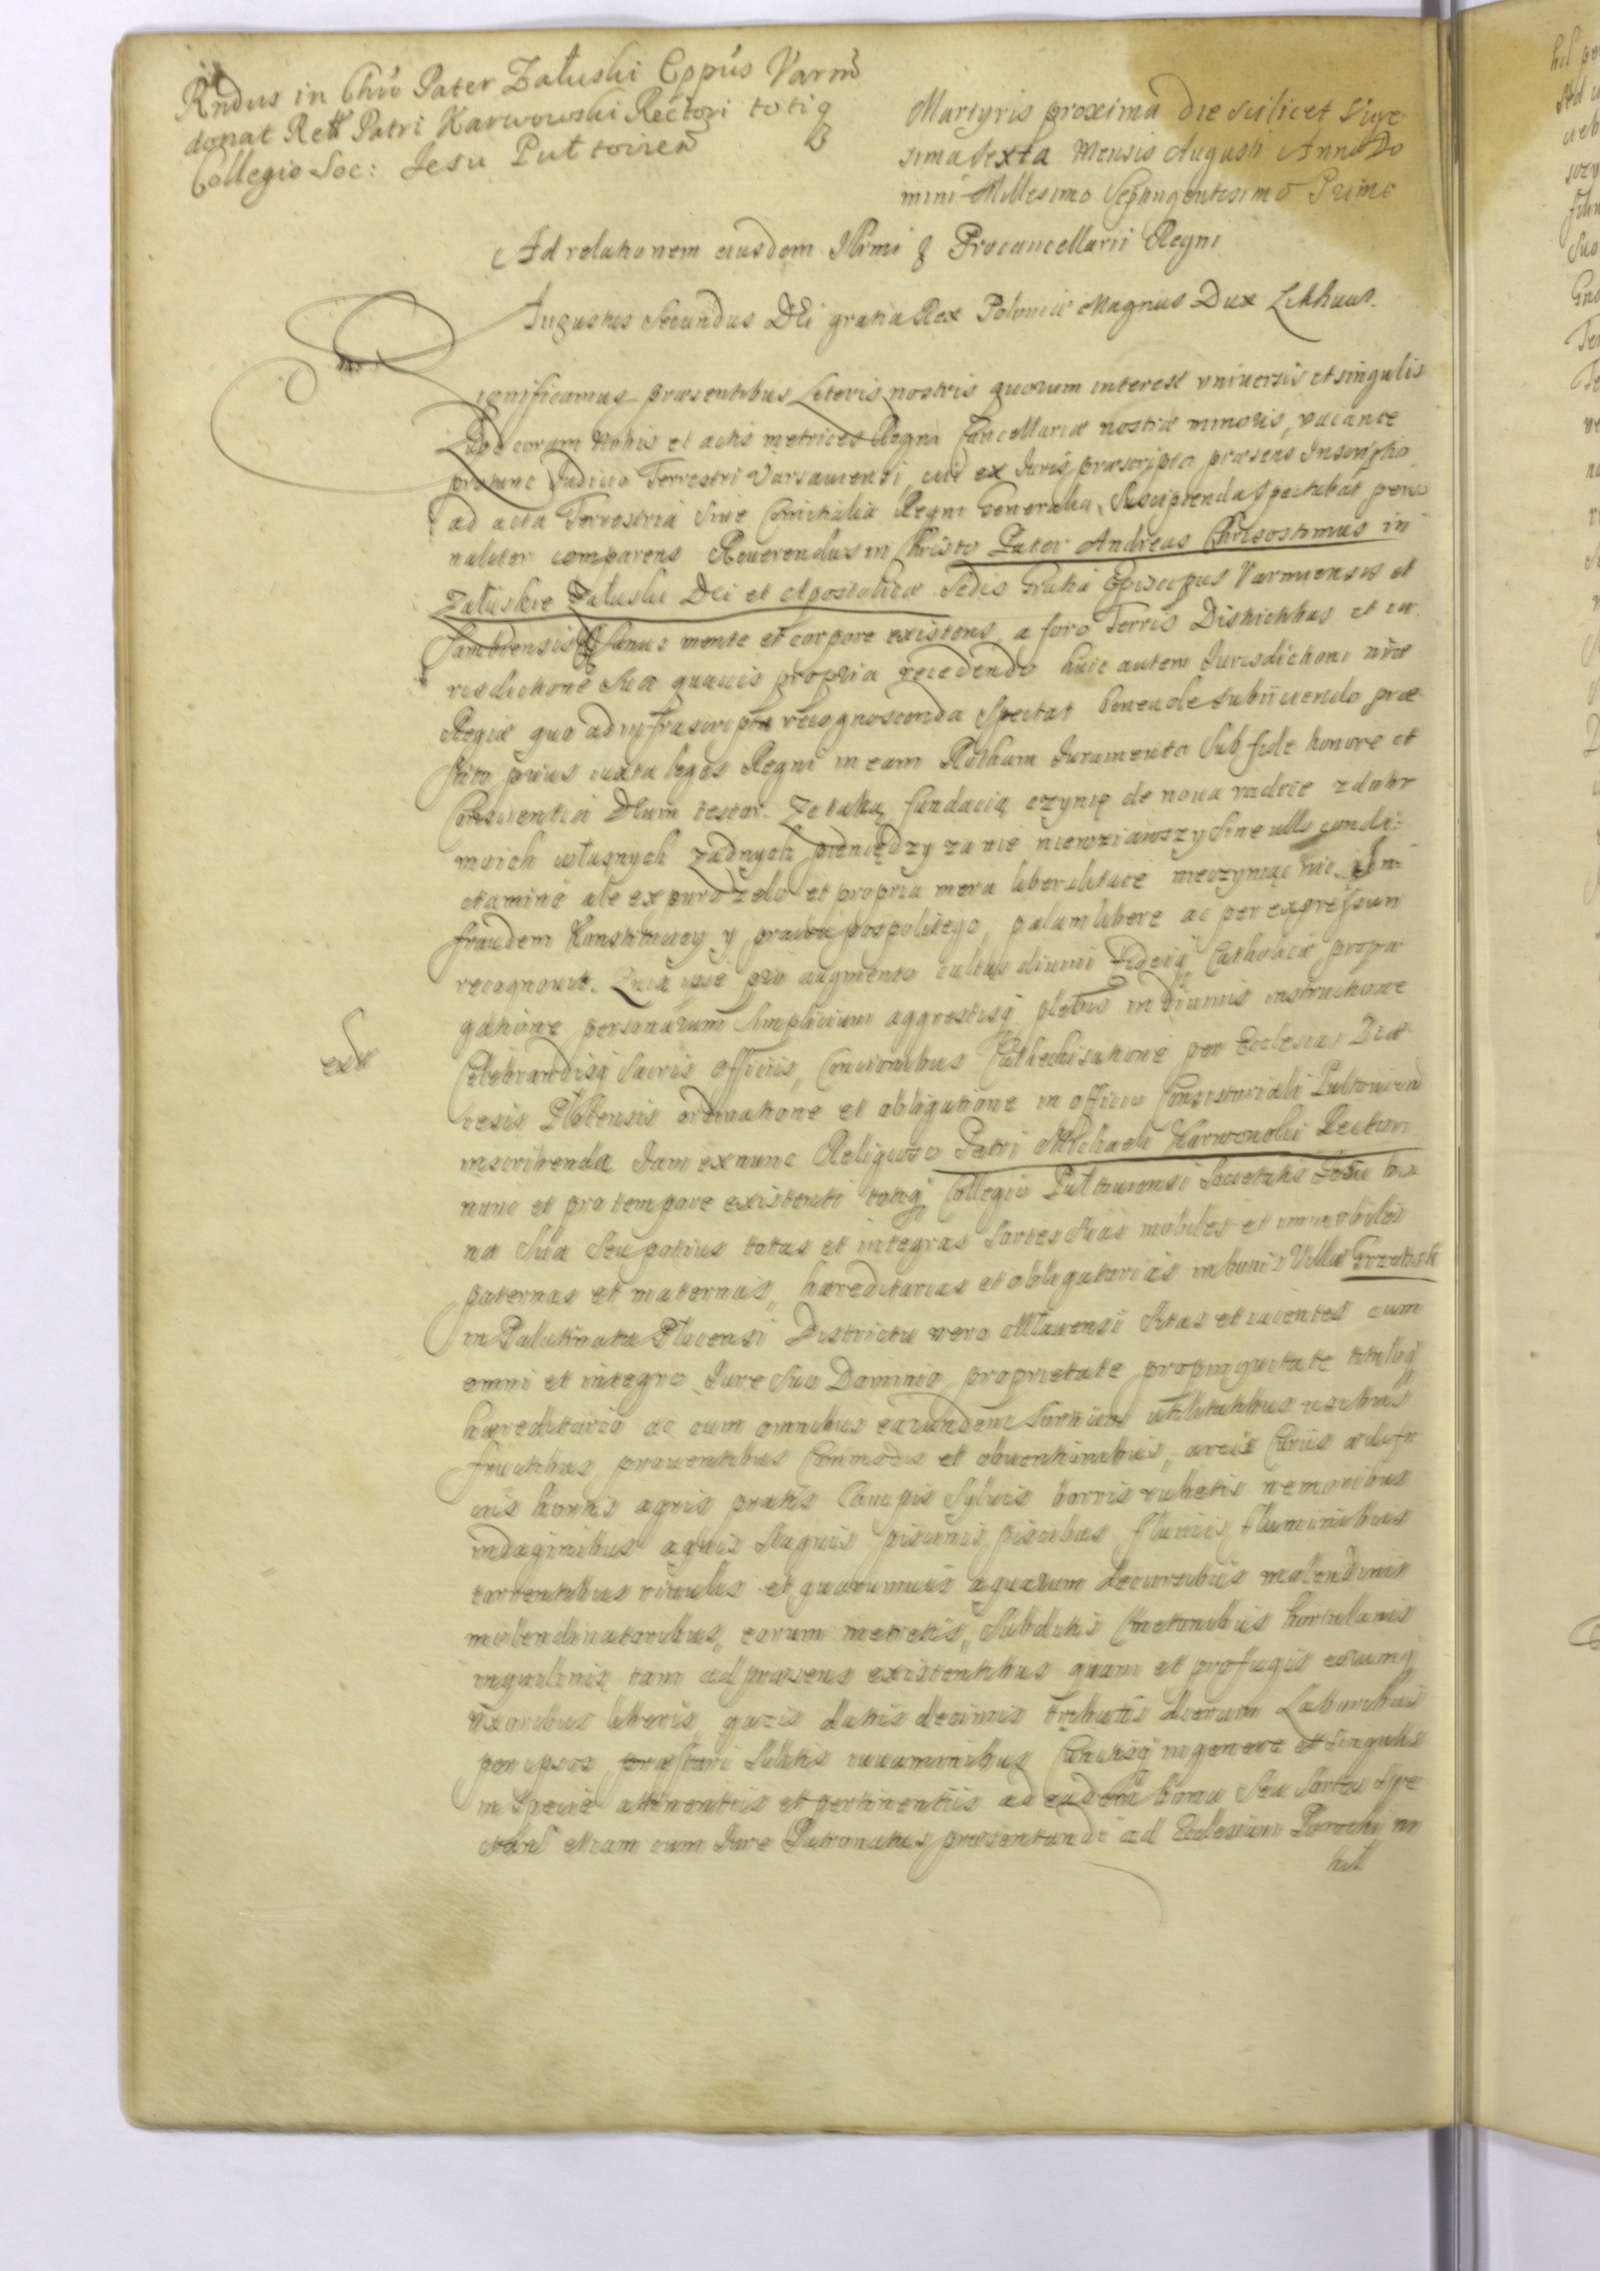 Rndus in Chro Pater Załuski Eppus Varm
donat Rel Patri Karwowski Rectori totiq
Collegio Soc: Jesu Pułtoiren
Martyris proxima die scilicet Vige
sima sexta Mensis Augusti Anno Do
mini Millesimo Septingentesimo Primo
Ad relationem eiusdem Illrmi Procancellarii Regni
Augustus Secundus Dei gratia Rex Poloniæ Magnus Dux Lithuan.
Significamus præsentibus Literis nostris quorum interest vniuersis et singulis
Quod coram Nobis et actis metrices Regni Cancellariæ nostræ minoris, vacante
protunc Judicio Terrestri Varsauiensi, cui ex Juris præscripto præsens Inscriptio
ad acta Terrestria siue Comitialia Regni Generalia, Suscipienda spectabat perso
naliter comparens Reuerendus in Christo Pater Andreas Chrisostimus in
Załuskie Załuski Dei et Apostolicæ Sedis Gratia Episcopus Varmiensis et
Sambiensis sanus mente et corpore existens, a foro Terris Districtibus et iu
risdictione sua quauis propria recedendo huic autem Jurisdictioni nræ
Regiæ quo ad infrascripta recognoscenda spectat beneuole subijciendo præ
stito prius iuxta leges Regni in eam Rotham Juramento Sub fide honore et
Conscientia Deum testor. Ze taką fundacią czynię de noua radice z dobr
moich własnych żadnych pieniędzy za nie niewziąwszy sine ullo condi:
ctamine ale ex puro zelo et propria mera liberalitate nieczyniąc nic in
fraudem Konstitucyy y prawa pospolitego, palam libere ac per expressum
recognouit. Quia ipse pro augmento cultus diuini Fideiq Catholicæ propa
gatione personarum simplicium aggrestisq plebis in Diuinis instructione
Celebrandisq sacris officiis, Concionibus Cathechisatione per Ecclesias Diæ
cesis Plocensis ordinatione et obligatione in officio Consistoriali Pultouiensi
inscribenda Jam ex nunc Religioso Patri Michaeli Karwowski Rectori
nunc et pro tempore existenti totiq Collegio Pułtouiensi Societatis Jesu bo
na sua seu potius totas et integras sortes suas mobiles et immobiles
paternas et maternas, hæreditarias et obligatorias in bonis Villæ
in Palatinatu Plocensi Districtu vero Mlauensi sitas et iacentes cum
omni et integro Jure suo Dominio proprietate propinquitate tituloq
hæreditario ac cum omnibus earundem sortium utilitatibus usibus
fructibus prouentibus Commodis et obuentionibus, areis Curiis ædifi
ciis hortis agris pratis Campis syluis borris rubetis nemoribus
indaginibus aquis stagnis piscinis piscibus fluuiis fluminibus
torrentibus riuulis et quorumuis aquarum decursibus molendinis
molendinatoribus, eorum metretis, Subditis Cmetonibus hortulanis
inquilinis tam ad præsens existentibus quam et profugis eorumq
vxoribus liberis, gazis datiis decimis tributis dierum Laboribus
per ipsos præstari solitis iuuaminibus Cunctisq in genere et singulis
in specie attinentiis et pertinentiis ad eadem bona seu sortes spe
ctan etiam cum Jure Patronatus præsentandi ad Ecclesiam Parochi